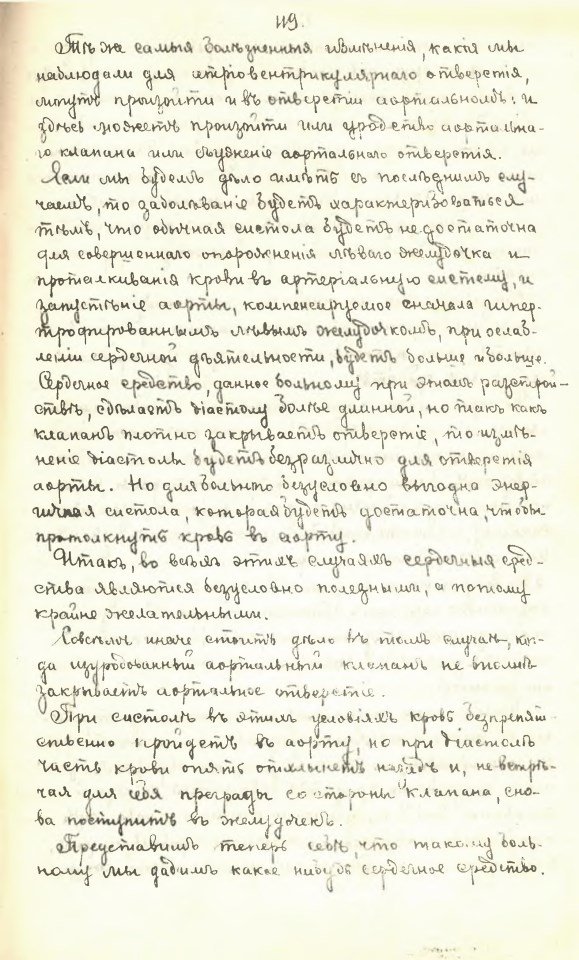 49.
Тѣ же самыя болѣзненныя измѣненія, какія мы
наблюдали для атріовентрикулярнаго отверстія,
могутъ произойти и въ отверстіи аортальномъ: и
здѣсь можетъ произойти или уродство аорталь на-
го клапана или съуженіе аортальнаго отверстія.
Если мы будемъ дѣло имѣть съ послѣднимъ слу-
чаемъ, то заболѣваніе будетъ характеризоваться
тѣмъ, что обычная систола будетъ недостаточна
для совершеннаго опорожненія лѣваго желудочка и
проталкиванія крови въ артеріальную систему, и
запустѣніе аорты, компенсируемое сначала гипер-
трофированнымъ лѣвымъ желудочкомъ, при ослаб-
леніи сердечной дѣятельности, будетъ больше и больше.
Сердечное средство, данное больному при этомъ разстрой-
ствѣ, сдѣлаетъ діастолу болѣе длинной, но такъ какъ
клапанъ плотно закрываетъ отверстіе, то измѣ-
неніе діастолы будетъ безразлично для отверстія
аорты. Но для больного безусловно выгодна энер-
гичная систола, которая будетъ достаточна, чтобы
протолкнуть кровь въ аорту.
Итакъ, во всѣхъ этихъ случаяхъ сердечныя сред-
ства являются безусловно полезными, а потому
крайне желательными.
Совсѣмъ иначе стоитъ дѣло въ томъ случаѣ, ког-
да изуродованный аортальный клапанъ не вполнѣ
закрываетъ аортальное отверстіе.
При систолѣ въ этихъ условіяхъ кровь безпрепят-
ственно пройдетъ въ аорту, но при діастолѣ
часть крови опять отхлынетъ назадъ и, не встрѣ-
чая для себя преграды со стороны клапана, сно-
ва поступитъ въ желудочекъ.
Представимъ теперь себѣ, что такому боль-
ному мы дадимъ какое нибудь сердечное средство.